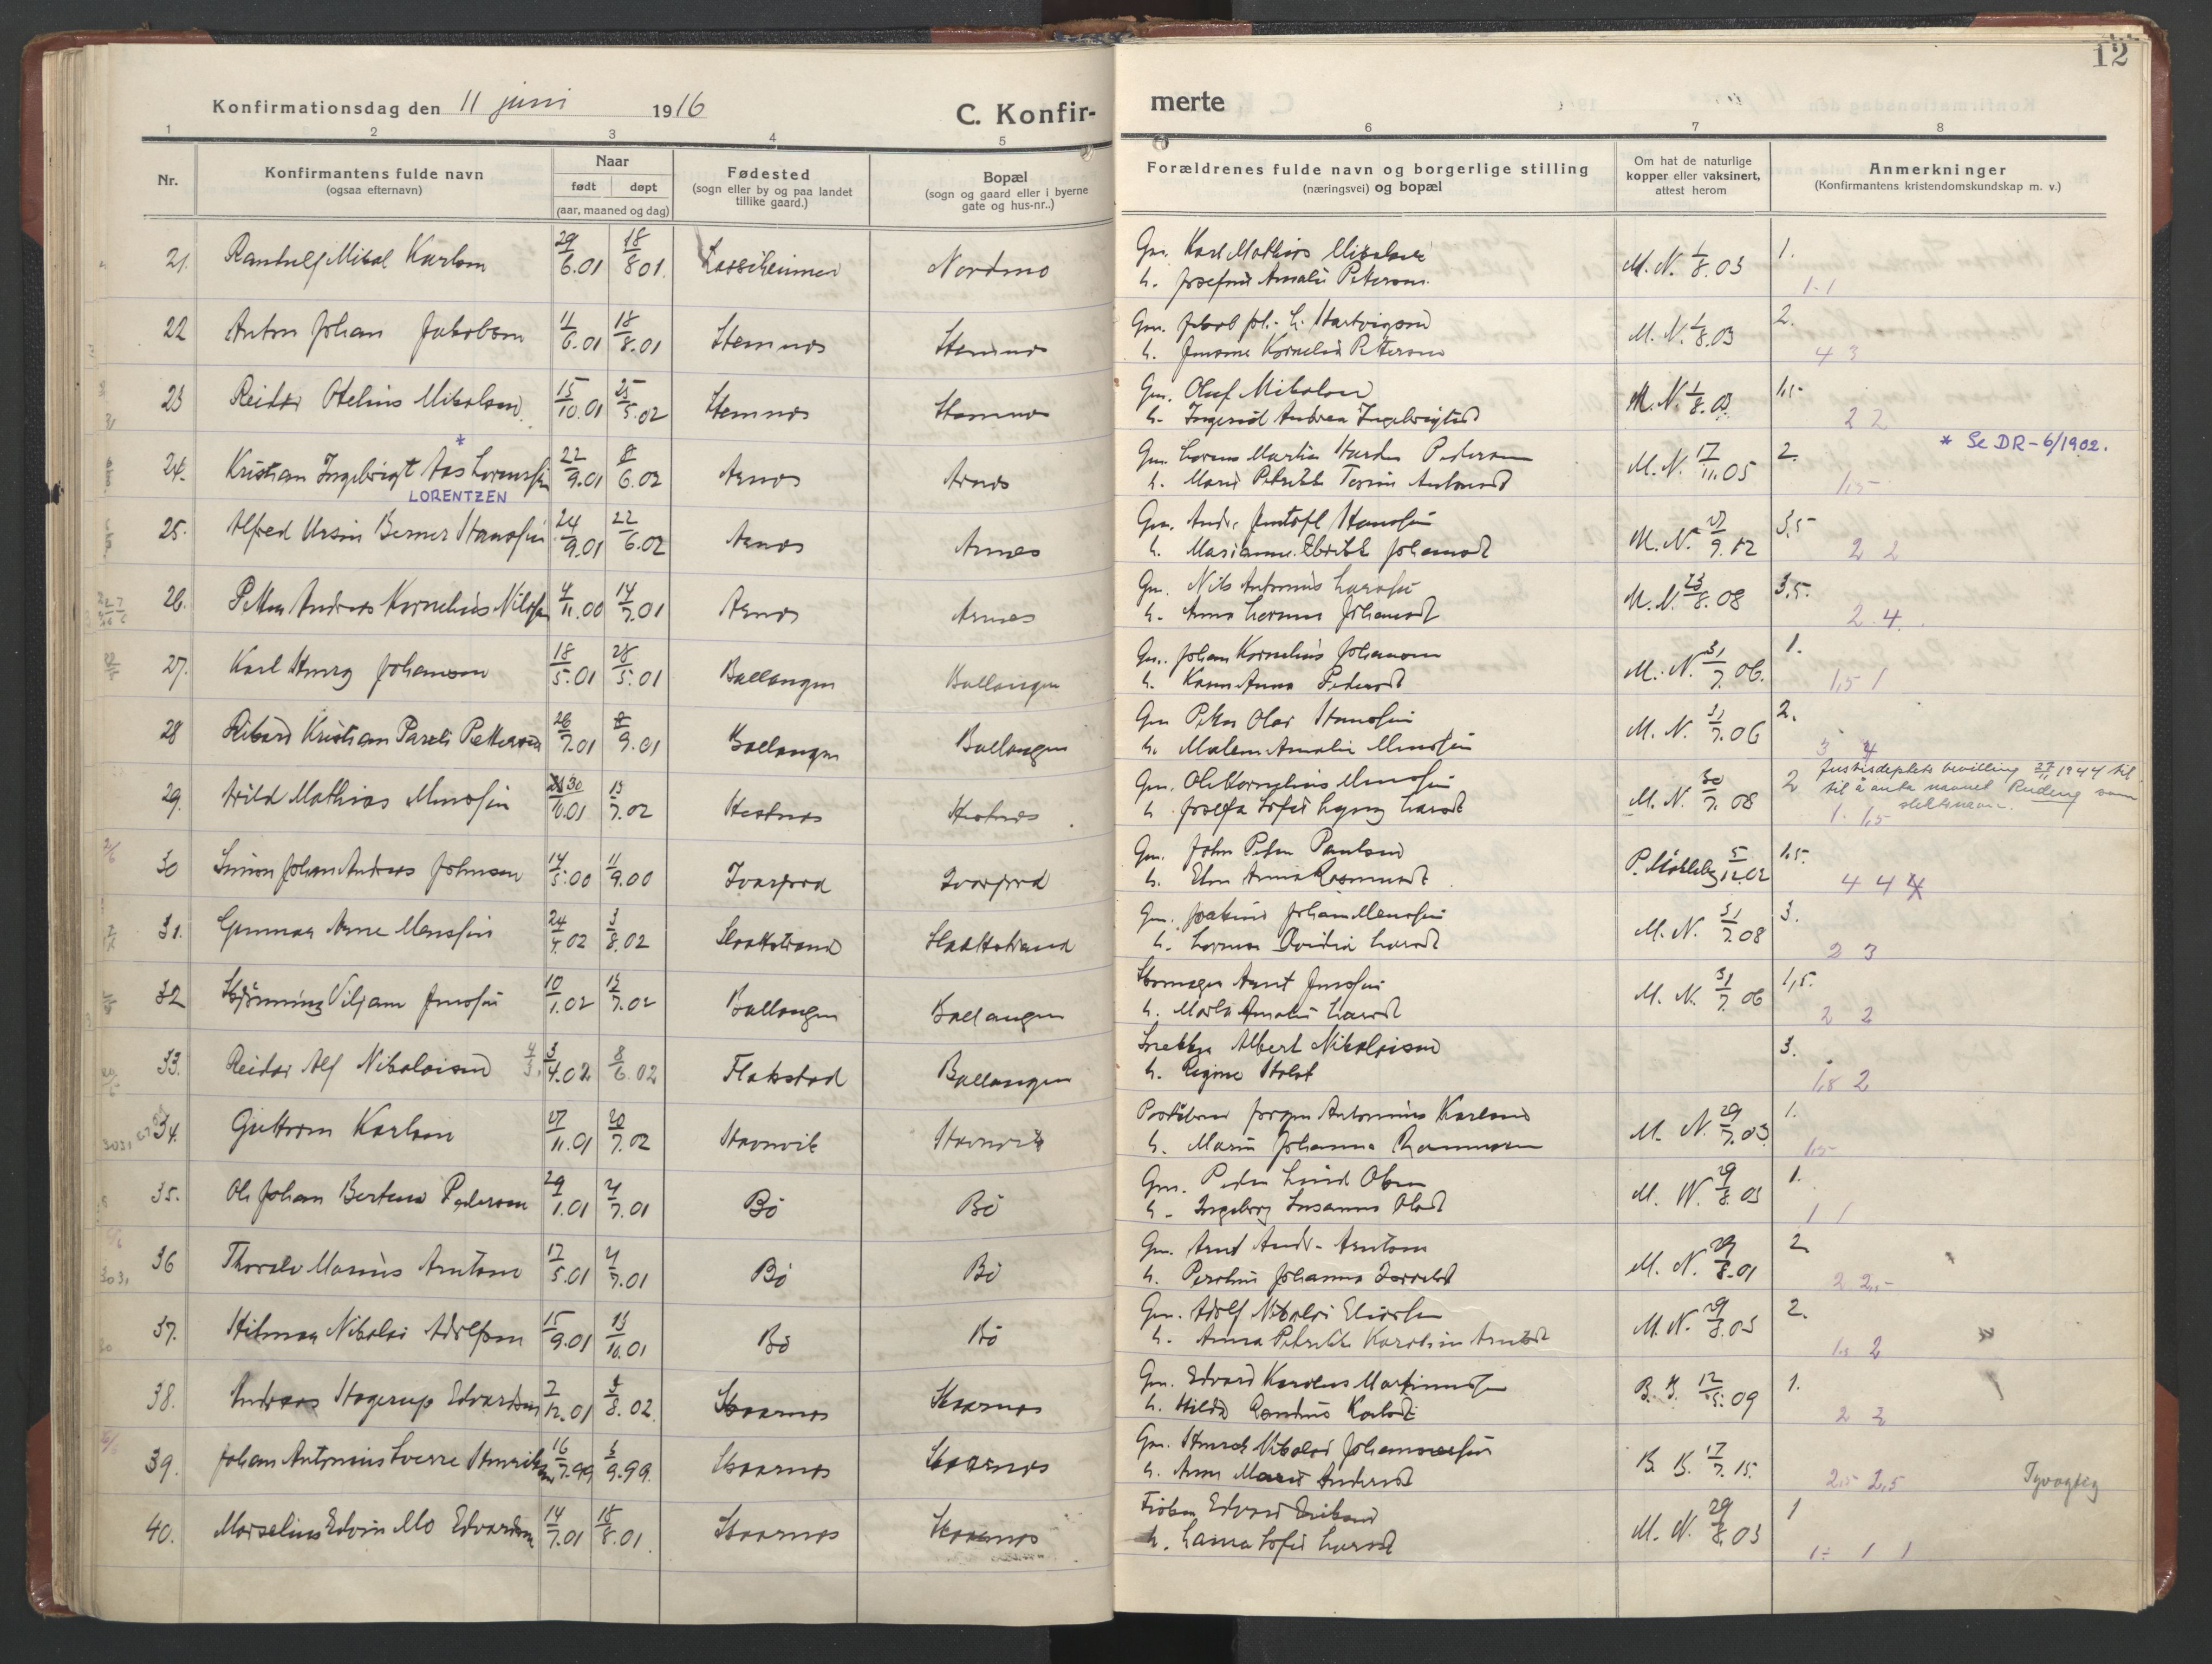 12
Konfirmationsdag den 11 juni 1916
C. Konfir-
merte
1 2 3 4 5 6 7 8
Nr.
Konfirmantens fulde navn
(ogsaa efternavn)
Naar
født døpt
(aar, maaned og dag)
Fødested
(sogn eller by og paa landet
tillike gaard.)
Bopæl
(sogn og gaard eller i byerne
gate og hus-nr..)
Forældrenes fulde navn og borgerlige stilling
(næringsvei) og bopæl
Om hat de naturlige
kopper eller vaksinert,
attest herom
Anmerkninger
(Konfirmantens kristendomskundskap m. v.)
21. Mikal Karlsen 29/6.01 18/8 01. Nordmo
Gm. Karl Mathias Mikalsen M. N. 1/8.03 1.
h. Josefine Amalie Petersen 1.1
22 Anton Johan Jakobsen 11/6.01 18/8.01 Stemnes Stemnes
Gm. Jakob Joh. L. Hartvigsen M. N. 1/8.03 2.
h. Kornelia Pettersen 4 3
23 Reidar Otelius Mikalsen 15/10.01 25/5.02 Stemnes Stemnes
Gm. Oluf Mikalsen M. N. 1/8.03 1,5
h. Ingerid Andrea Ingebrigtsd 2 2
* * Se DR-6/1902.
24. Kristian Ingebrigt Aas Lorentsen 22/9.01 8/6.02 Arnes Arnes
LORENTZEN
Gm. Lorens Martin Pedersen M. N. 17/11.05 2.
h. Marie Petrikke Antonsd 1,5
25. Alfred Ursin Berner Hansen 24/9.01 22/6.02 Arnes Arnes
Gm. Andr. Jentoft Hansen M. N. 27/9.12 3,5
h. Marianne Johansd 2 2
26. Petter Andreas Kornelius Nilsen 4/11.00 14/7.01 Arnes Arnes
Gm. Nils Antonius Larsen M. N. 23/8.08 3,5.
h. Anna Johansd 2. 4.
27. Karl Johansen 18/5.01 28/5.01 Ballangen Ballangen
Gm. Johan Kornelius Johansen M. N. 31/7.06. 1.
h. Karen Anna Pedersd 1,5 1
28 Rikard Kristian Parels Pettersen 26/7.01 8/9.01 Ballangen Ballangen
Gm Petter Olai Hansen M. N. 31/7.06 2.
h. Malene Amalie Monsen 3 4
29. Arild Mathias Monsen 30/10.01 13/7.02 Hestnes Hestnes
Gm. Ole Kornelius Monsen M. N. 30/7.08 2
h. Josefa Sofie Larsd 1. 1,5
Justisdeptets bevilling 27/11 1944 til
til å anta navnet Rudeng som
slektsnavn.
30 Simon Johan Andreas Johnsen 14/5.00 11/9.00 Ivarjord Ivarjord
Gm. John Peder Paulsen 5/12.02 1,5.
h. Elen Anna Rasmusd 4 4 4
31. Gunnar Arne Monsen 24/4.02 3/8.02 Slaattstrand Slaattstrand
Gm. Joakim Johan Monsen M. N. 31/7.08 3.
h. Ovidia Larsd 2 3
32 Viljam Jensen 10/1.02 13/7.02 Ballangen Ballangen
Arnt Jensen M. N. 31/7.06 1,5.
h. Marla Amalie Larsd 2 2
33. Reidar Alf Nikolaisen 3/4.02 8/6.02 Flakstad Ballangen
Snekker Albert Nikolaisen 3.
h. Regine Holst 1,5 2
34. Guttorm Karlsen 27/11.01 20/7.02 Stavnvik Stavnvik
Jørgen Antonius Karlsen M. N. 29/7.03. 1.
h. Marie Johanna 1,5
35. Ole Johan Berteus Pedersen 29/1.01 21/7.01 Bø Bø
Gm. Peder Lund Olsen M. N. 29/8.03 1.
h. Ingeborg Susanna Olsd 1 1
36 Thoralv Marius Arntsen 17/5.01 21/7.01 Bø Bø
Gm. Arnt Andr. Arntsen M. N. 29/8.01 2
h. Johanna 2 2,5
37. Hilmar Nikolai Adolfsen 15/9.01 13/10.01 Bø Bø
Gm. Adolf Nikolai M. N. 29/8.03 2.
h. Anna Petrikke Karoline 1,5 2
38. Andreas Hagerup Edvardsen 7/12.01 3/8.02. Skarnes Skarnes
Gm. Edvard Karelius Martinussen B. K. 12/5.09 1.
h. Hilda Karlsd 2 2
39. Johan Antonius Sverre Henriksen 16/7.99 3/9.99. Skarnes Skarnes
Gm. Henrik Nikolai Johannessen B. K. 17/7.15. Tyvagtig
h. Anne Marie Andersd 2,5 2,5
40. Marselius Edvin Mo Edvardsen 14/7.01 18/8.01. Skarnes Skarnes
Edvard Eriksen M. N. 29/8.03 1
h. Laura Sofie Larsd 1 1